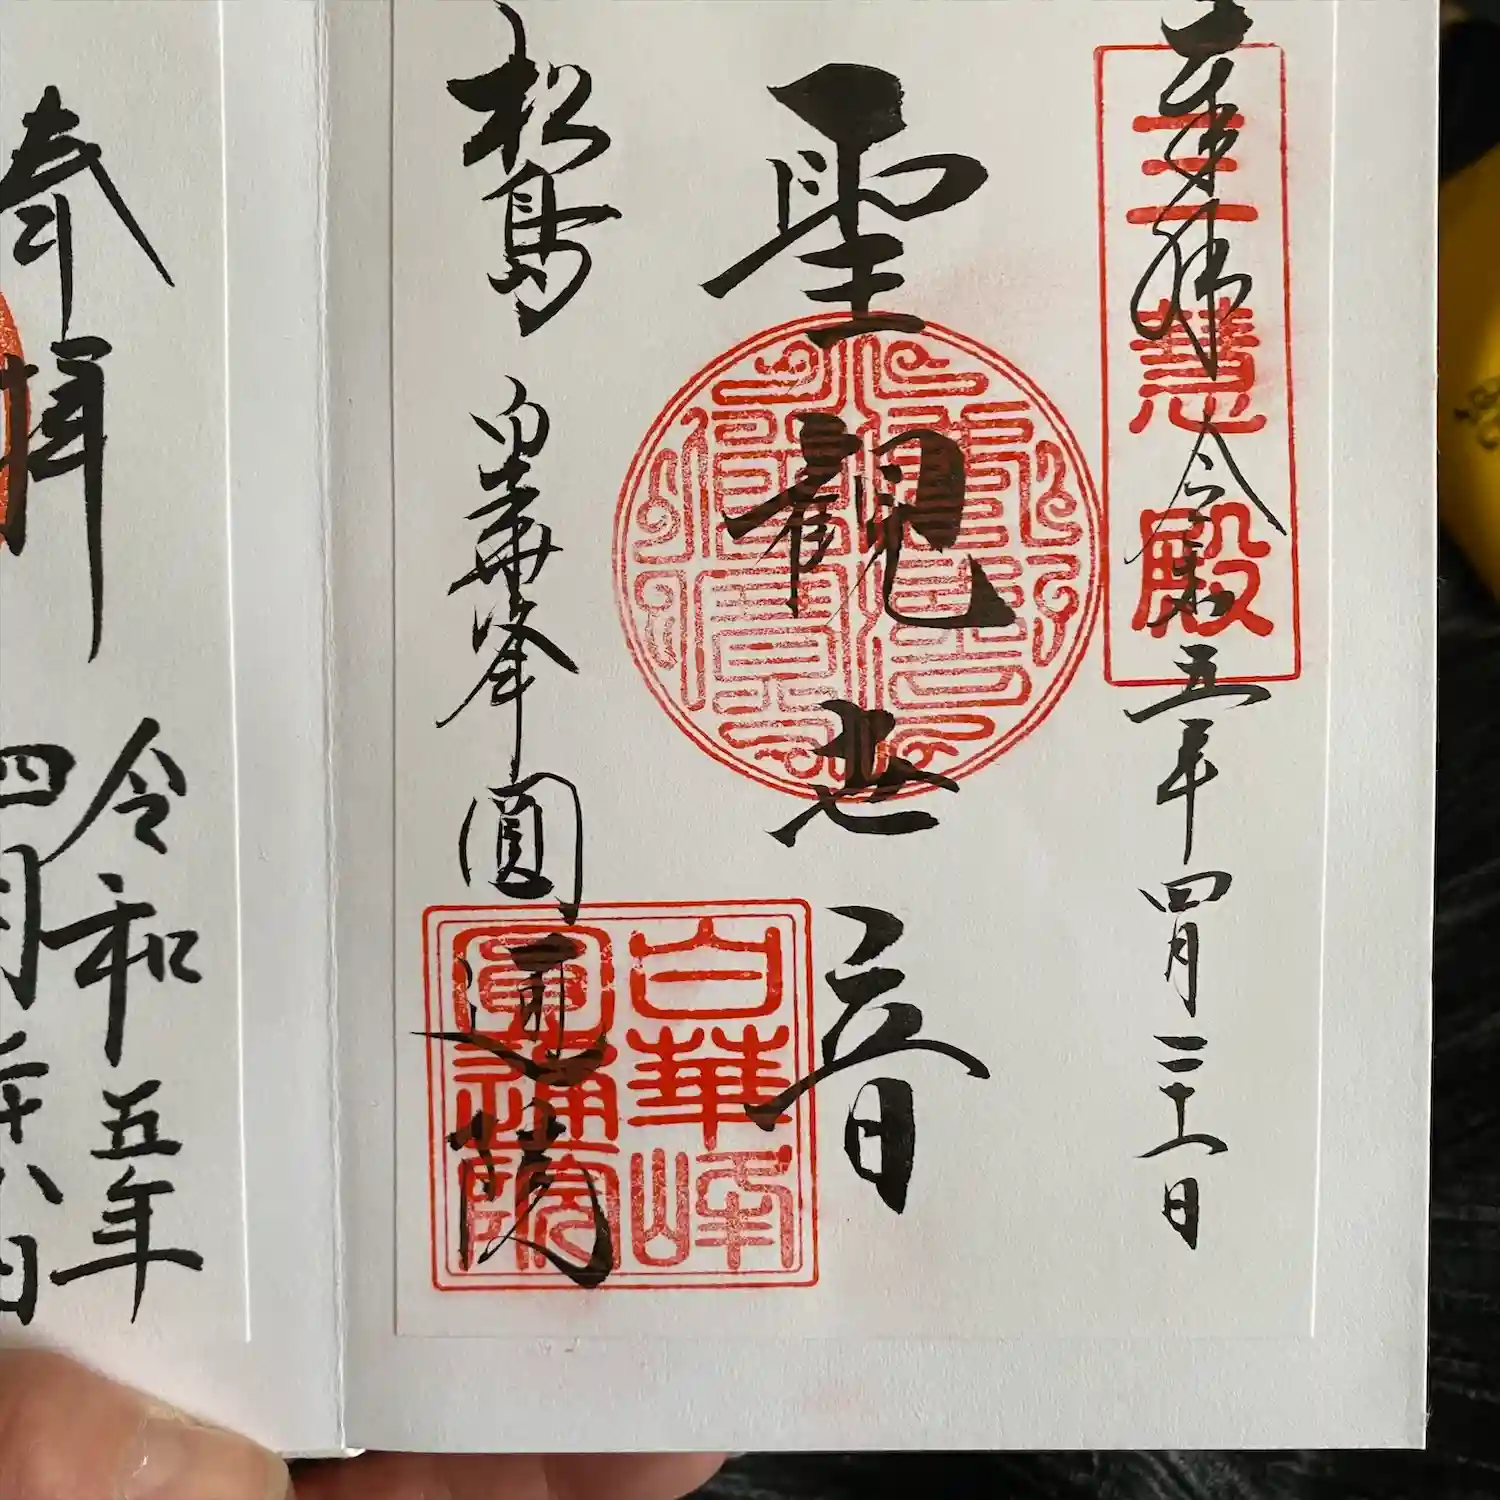 奉拝 令和五年四月二十八日
三慧殿
聖観世音
松島 白華峰圓通院
白華峰
圓通院
奉拝 令和五年
四月二十八日